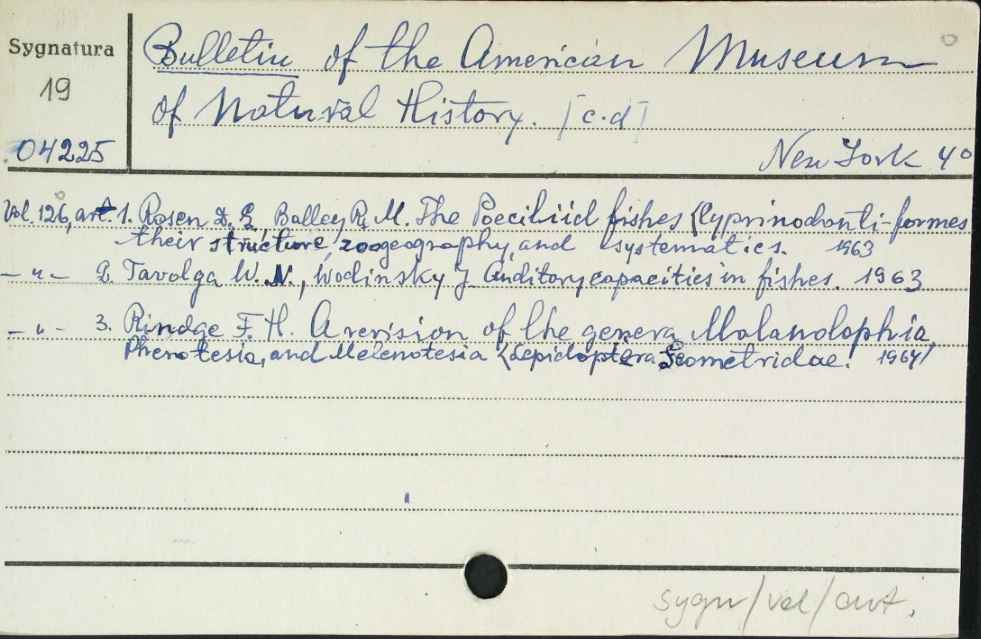 Sygnatura
19
04225
Bulletin of the American Museum
of Natural History. [c.d]
New York 4°
Vol. 126, art. 1. Rosen D. E. Balley R. M. The Poeciliid fishes (Cyprinodonti-formes
their structure zoogeography, and systematics. 1963
- " - 2. Tavolga W. N., Wodinsky J. Auditory capacities in fishes. 1963
- " - 3. Rindge F. H. A revision of the genera Molanolophia,
Pherotesia, and Melenotesia (Lepidoptera Geometridae. 1964)
sygn/vol/art.